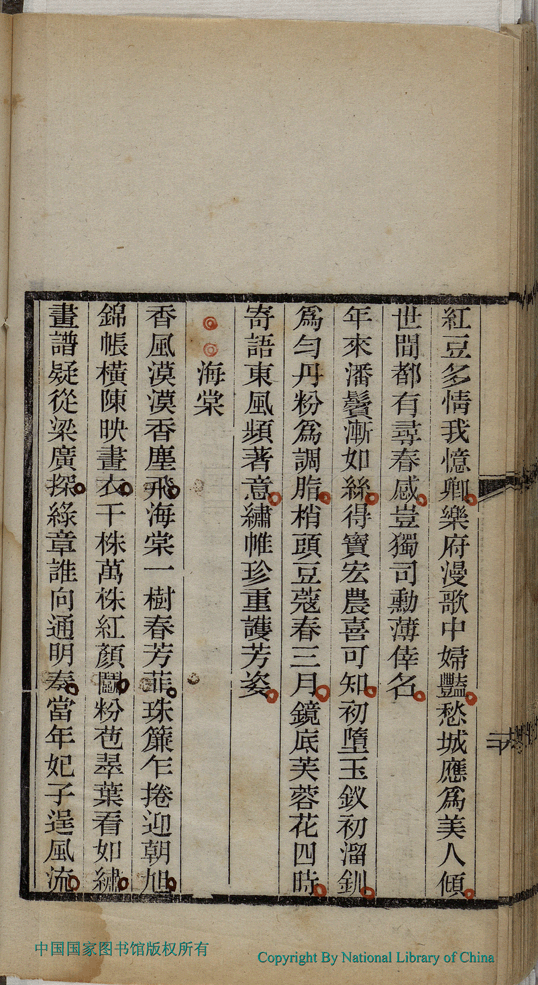 紅豆多情我憶卿樂府漫歌中婦豔愁城應爲美人傾
世間都有尋春感豈獨司勳薄倖名
年來潘鬢漸如絲得寶宏農喜可知初墮玉釵初溜釧
爲勻丹粉爲調脂梢頭豆蔻春三月鏡底芙蓉花四時
寄語東風頻著意繡帷珍重護芳姿
海棠
香風漠漠香塵飛海棠一樹春芳菲珠簾乍捲迎朝旭
錦帳橫陳映畫衣千株萬株紅顏鬭粉苞翠葉看如繡
畫譜疑從梁廣探綠章誰向通明奏當年妃子逞風流
中国国家图书馆版权所有
Copyright By National Library of China